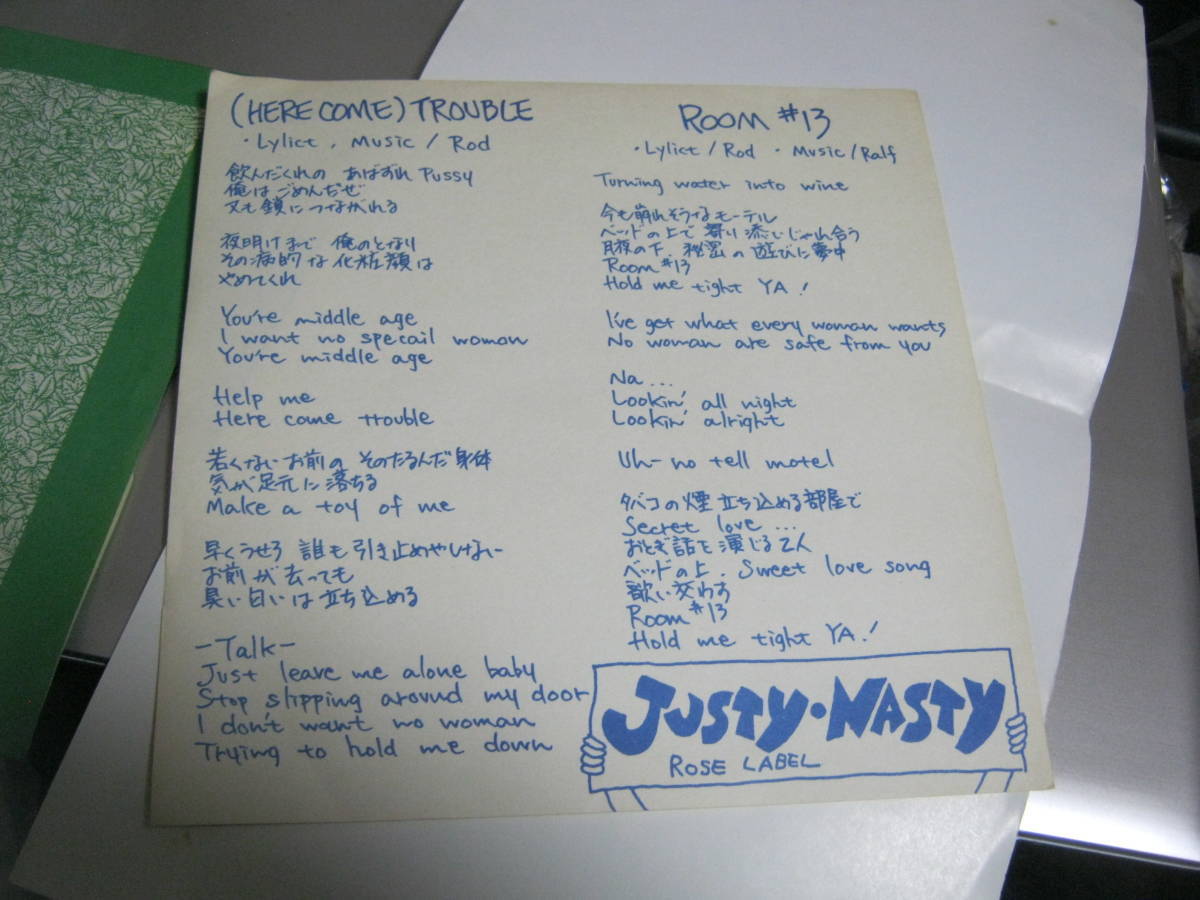 (HERE COME) TROUBLE
・Lylict, Music / Rod
飲んだくれの あばずれ Pussy
俺はごめんだぜ
又も鎖につながれる
夜明けまで 俺のとなり
その病的な化粧顔は
やめてくれ
You're middle age
I want no specail woman
You're middle age
Help me
Here come trouble
若くないお前の そのたるんだ身体
気が足元に落ちる
Make a toy of me
早くうせろ 誰も引き止めやしない
お前が去っても
臭い匂いは立ち込める
-Talk-
Just leave me alone baby
Stop slipping around my door
I don't want no woman
Trying to hold me down
ROOM #13
・Lylict / Rod ・Music / Ralf
Turning water into wine
今も崩れそうなモーテル
ベッドの上で寄り添いじゃれ合う
月夜の下、秘密の遊びに夢中
Room #13
Hold me tight YA!
I've get what every woman wants
No woman are safe from you
Na...
Lookin' all night
Lookin' alright
Uh- no tell motel
タバコの煙立ち込める部屋で
Secret love...
おとぎ話を演じる2人
ベッドの上、Sweet love song
歌い交わす
Room #13
Hold me tight YA!
JUSTY・NASTY
ROSE LABEL